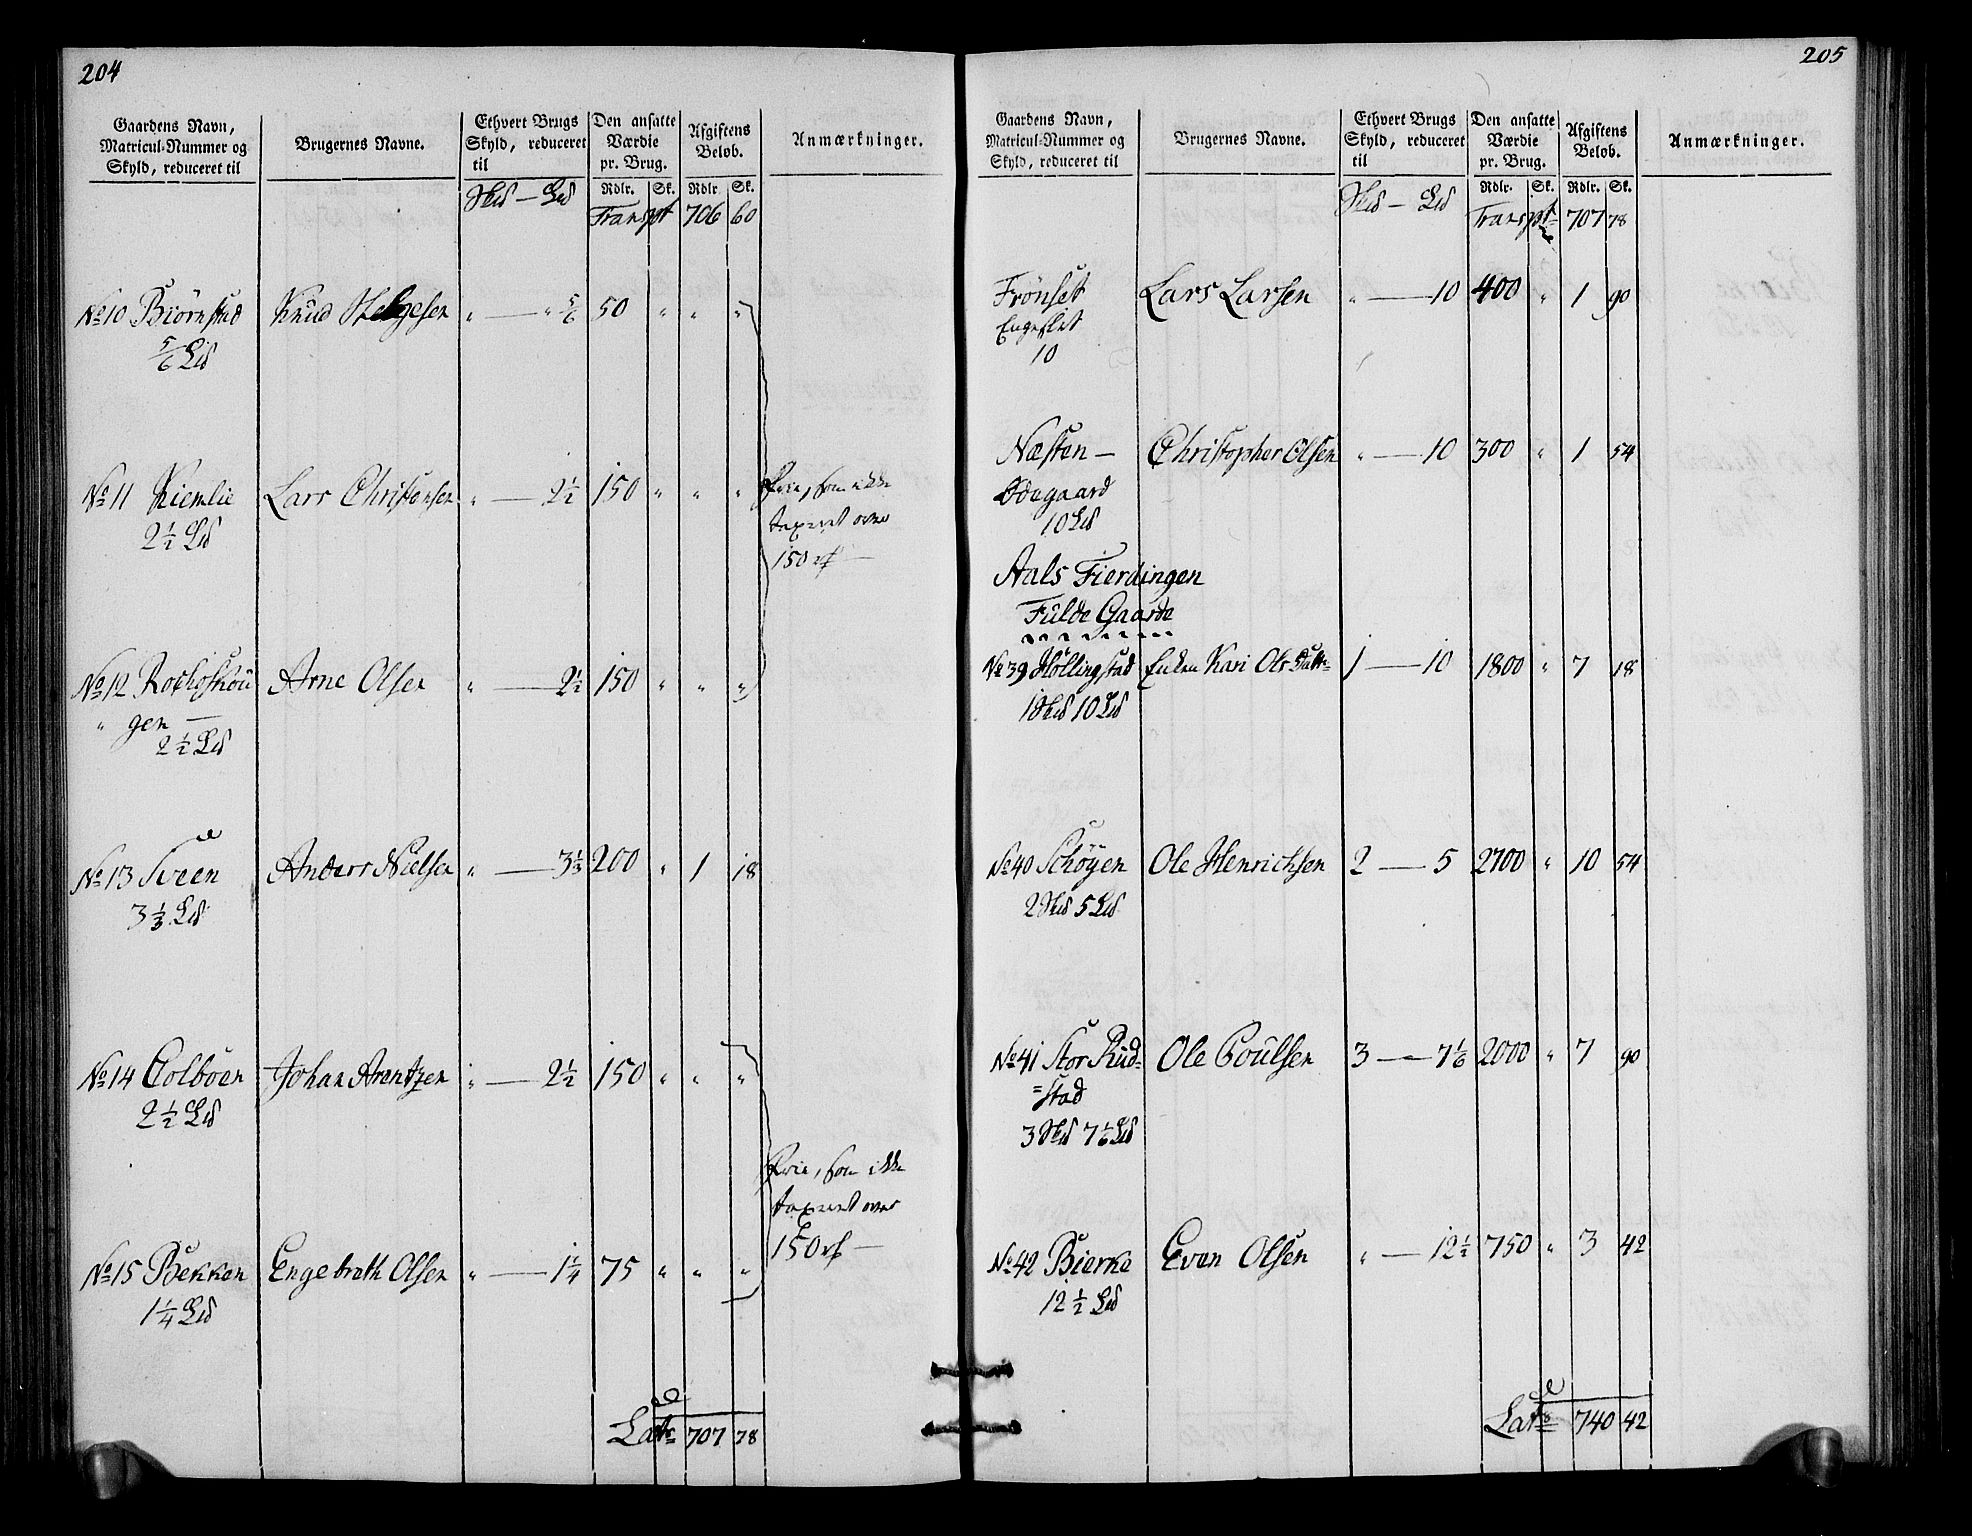 204
Gaardens Navn, Matricul-Nummer og Skyld, reduceret til | Brugernes Navne. | Ethvert Brugs Skyld, reduceret til | Den ansatte Værdie pr. Brug. | Afgiftens Beløb. | Anmærkninger.
Skd — Ld | Rdlr. | Sk. | Rdlr | Sk.
Transpt 706 60
No 10 Biørnstad Knud Helgesen " — " 5/6 50 " " "
5/6 Ld
No 11 Kiemlie Lars Christensen " — 2 1/2 150 " " " Frie, som ikke
2 1/2 Ld taxeret over
150 rd —
No 12 Rothoskou Arne Olsen " — 2 1/2 150 " " "
" gen —
2 1/2 Ld
No 13 Sveen Anders Nielsen " — 3 1/3 200 " 1 18
3 1/3 Ld
No 14 Colboen Johan Arentzen " — 2 1/2 150 " " "
2 1/2 Ld
Frie, som ikke
taxeret over
150 rd —
No 15 Bekken Engebreth Olsen " — 1 1/4 75 " " "
1 1/4 Ld
Lats 707 78
205
Gaardens Navn, Matricul-Nummer og Skyld, reduceret til | Brugernes Navne. | Ethvert Brugs Skyld, reduceret til | Den ansatte Værdie pr. Brug. | Afgiftens Beløb. | Anmærkninger.
Skd — Ld | Rdlr. | Sk. | Rdlr. | Sk.
Transpt 707 78
Frönset Lars Larsen " — 10 400 " 1 90
Engeslit
10
Næsten — Christopher Olsen " — 10 300 " 1 54
Ødegaard
10 Ld
Aals Fierdingen
Fulde Gaarde
No 39 Höllingstad Enken Kari Ols 1 — 10 1800 " 7 18
1 Skd 10 Ld
No 40 Schöyen Ole Henrichsen 2 — 5 2700 " 10 54
2 Skd 5 Ld
No 41 Stor Rud- Ole Poulsen 3 — 7 1/6 2000 " 7 90
=stad
3 Skd 7 1/6 Ld
No 42 Bierke Even Olsen " — 12 1/2 750 " 3 42
12 1/2 Ld
Lats 740 42